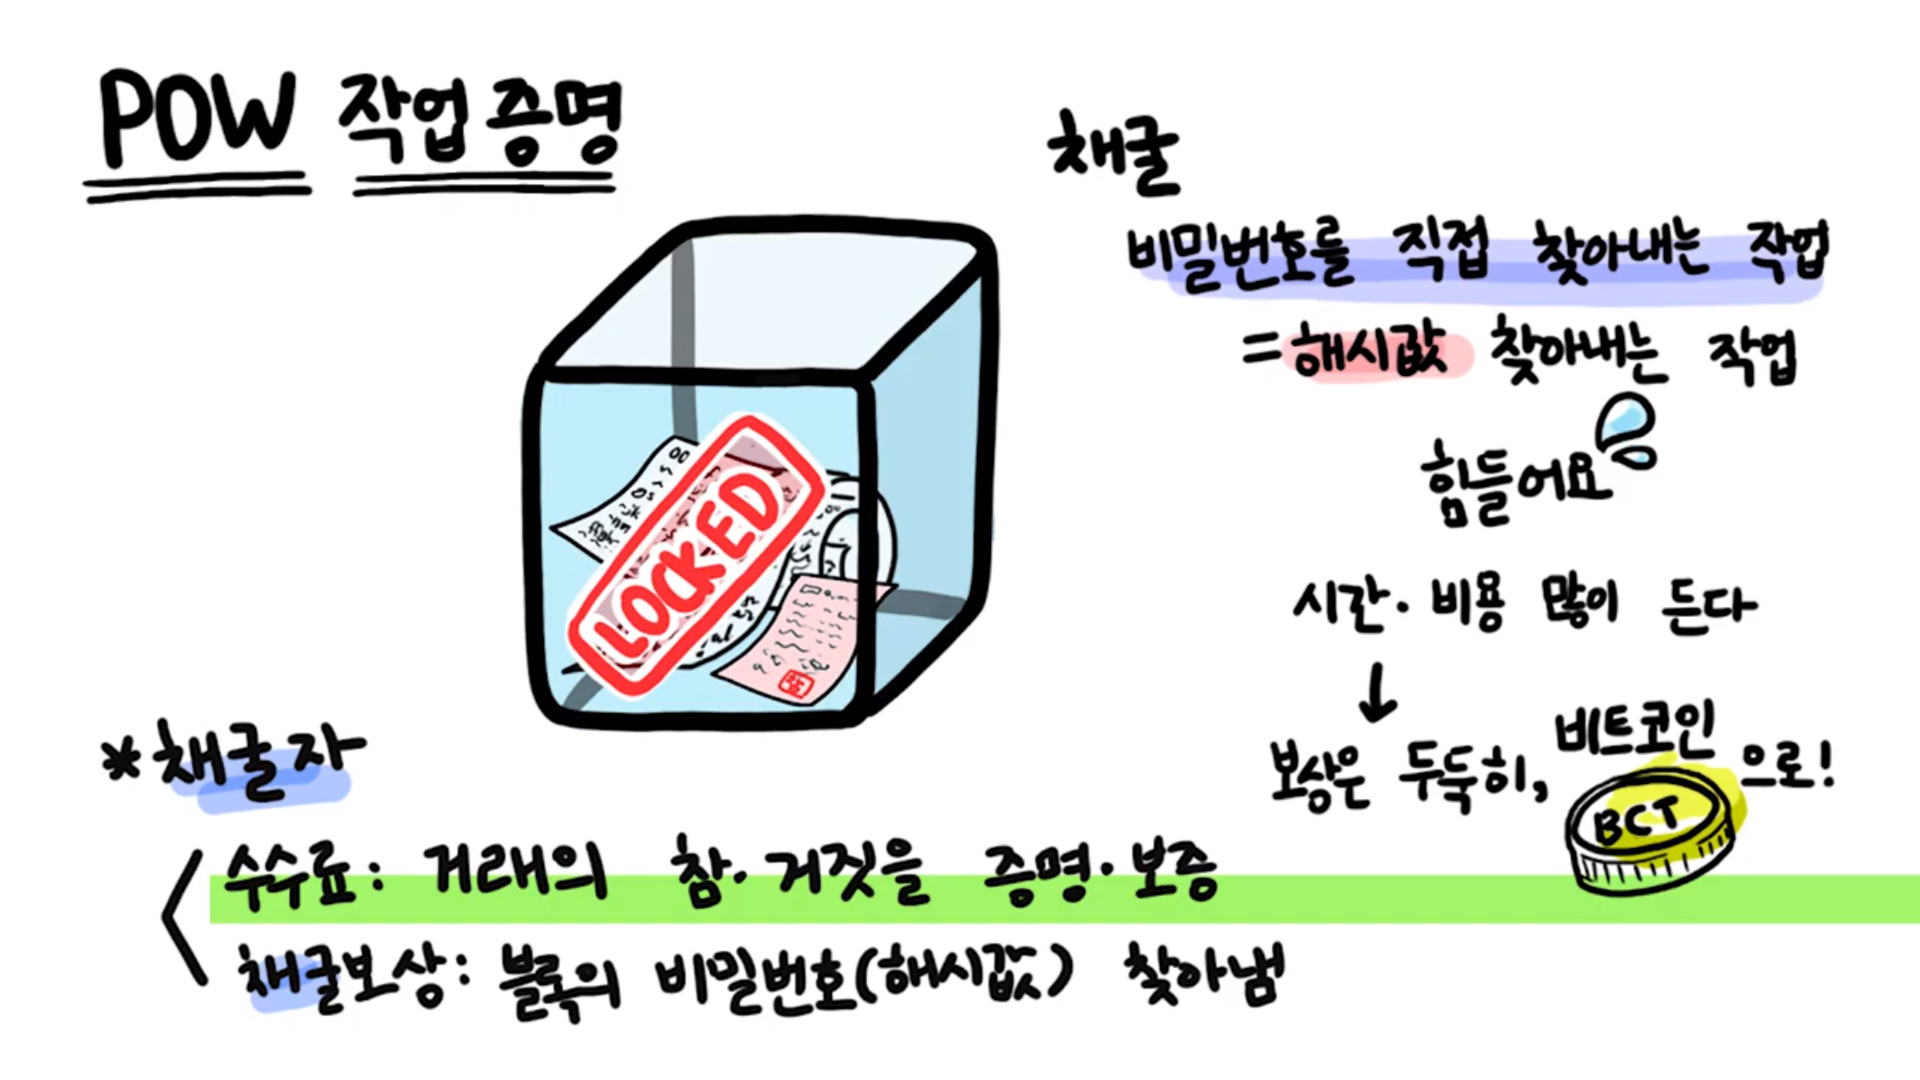 POW 작업증명
채굴
비밀번호를 직접 찾아내는 작업
=해시값 찾아내는 작업
힘들어요
시간·비용 많이 든다
↓
보상은 두둑히, 비트코인으로!
BCT
LOCKED
*채굴자
수수료: 거래의 참·거짓을 증명·보증
채굴보상: 블록의 비밀번호(해시값) 찾아냄